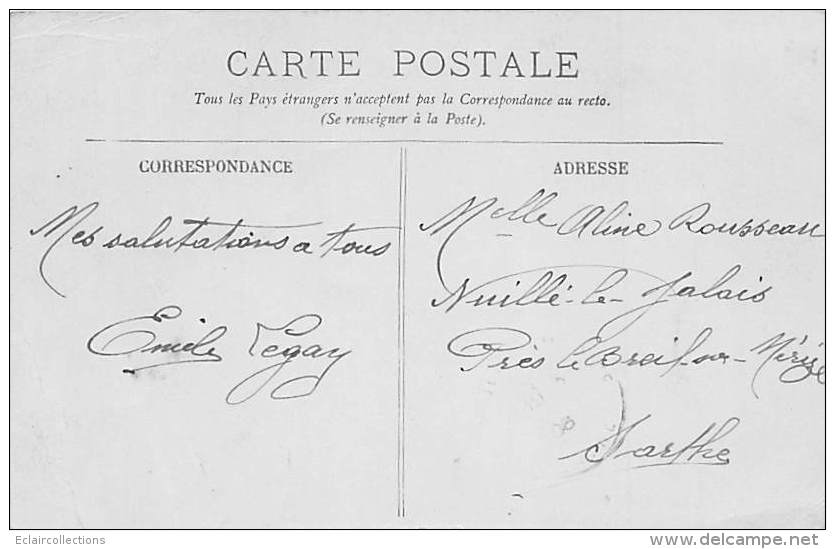 CARTE POSTALE
Tous les Pays étrangers n'acceptent pas la Correspondance au recto.
(Se renseigner à la Poste).
CORRESPONDANCE
Mes salutations a tous
Emile Legay
ADRESSE
Melle Aline Rousseau
Nuillé-le-Jalais
Près le Breil-sur-Mérize
Sarthe
Eclaircollections
delcampe.net